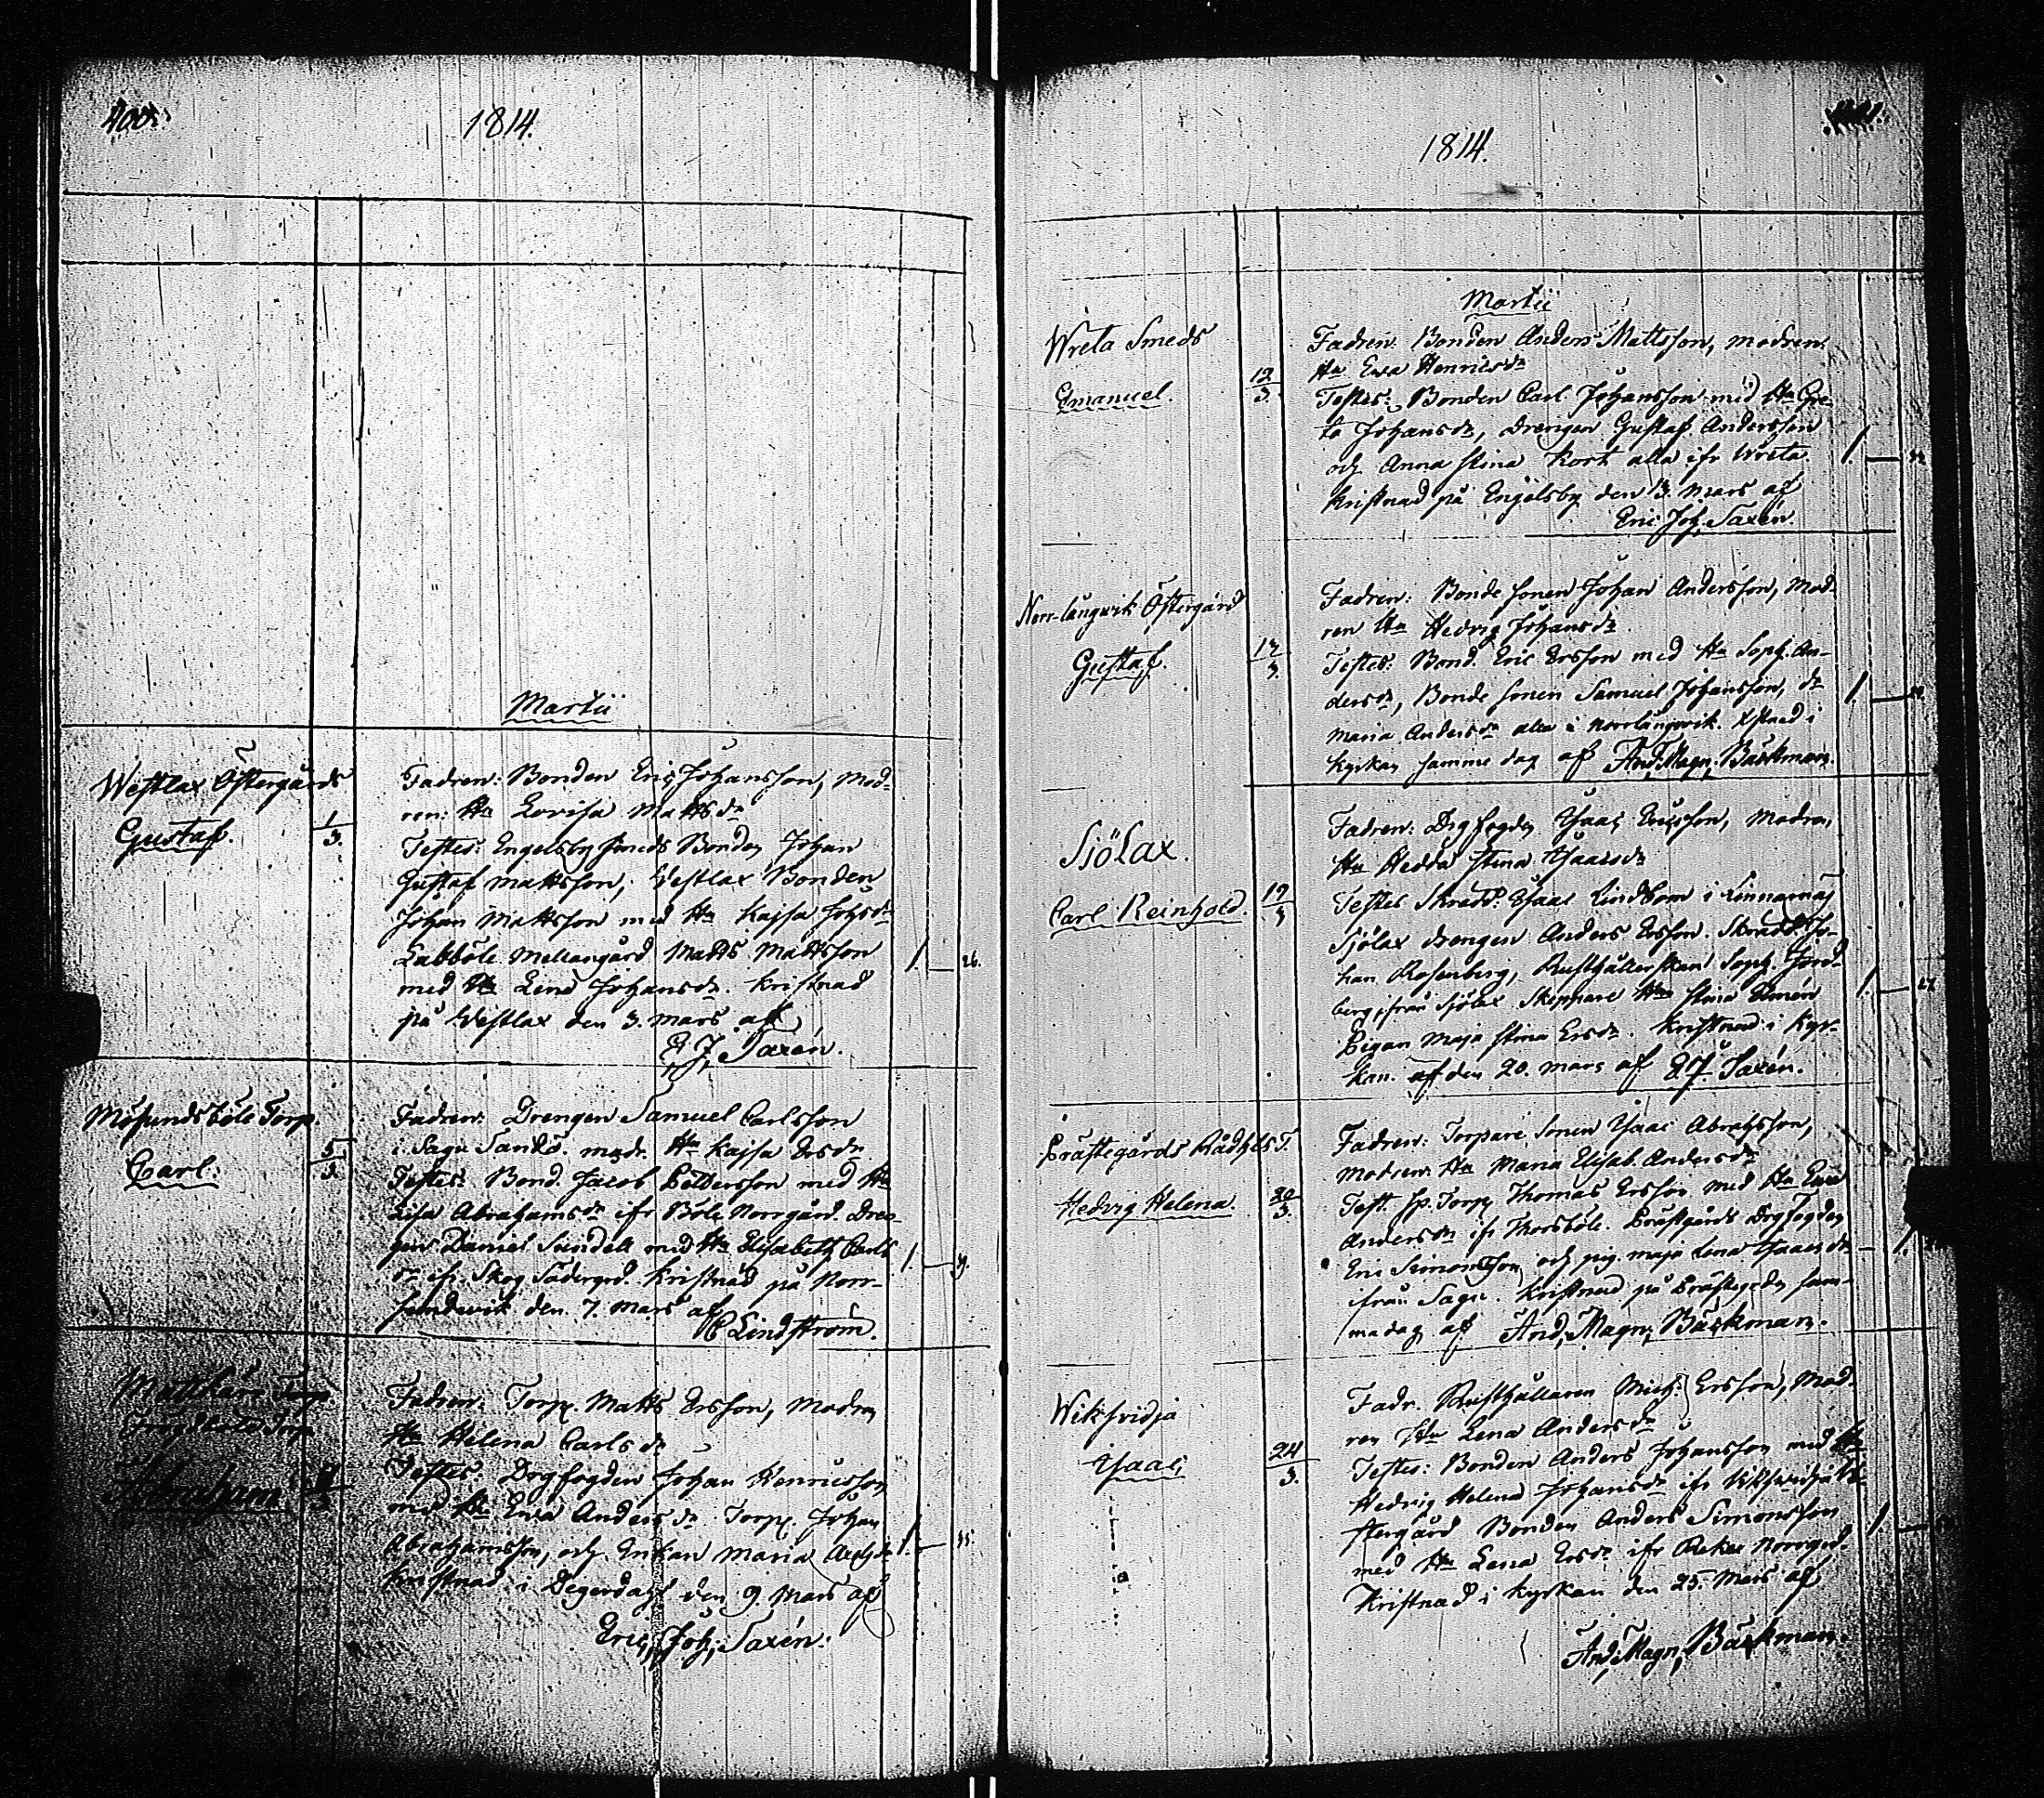 400.
1814.
Martii
Westlax Östergårds
Gustaf.
1/3.
Fadren: Bonden Eric Johansson, Mod-
ren: Hu Lovisa Mattsdr
Testes: Engelsby Smeds Bonden Johan
Gustaf Mattsson, Westlax Bonden
Johan Mattsson med Hu Kajsa Johsdr
Labböle Mellangård Matts Mattsson
med Hu Lena Johansdr. Kristnad
på Westlax den 3. Mars af
E. J. Saxén.
1. 26.
Mösundsböle Torp
Carl.
5/3.
Fadren: Drengen Samuel Carlsson
i Sagu Sandö. modr. Hu Kajsa Ersdr
Testes: Bond. Jacob Pettersson med Hu
Lisa Abrahamsdr ifr Böle Norrgård. Dren-
gen Daniel Sundell med Hu Elisabeth Carls
dr ifr. Skog Södergrd. Kristnad på Norr-
sundvik den 7. Mars af
C Lindström.
1.
Torp
Abraham
Fadren: Torp. Matts Ersson, Modren
Hu Helena Carlsdr
Testes: Drgfogden Johan Henricsson
med Hu Ewa Andersdr. Torp. Johan
Abrahamsson, och Enkan Maria
Kristnad i Degerdahl den 9. Mars af
Eric Joh. Saxén.
1. 35.
1814.
Martii
Wreta Smeds
Emanuel.
12/3.
Fadren: Bonden Anders Mattsson, modren
Hu Ewa Henricsdr
Testes: Bonden Carl Johansson med Hu Gre-
ta Johansdr, Drengen Gustaf Andersson
och Anna Stina Kort alla ifr Wreta.
Kristnad på Engelsby den 13. Mars af
Eric Joh. Saxén.
1.
Norr-långwik Östergård
Gustaf.
13/3.
Fadren: Bonde Sonen Johan Andersson, Mod-
ren Hu Hedvig Johansdr
Testes: Bond. Eric Ersson med Hu Soph. An-
dersdr, Bonde Sonen Samuel Johansson, dr
Maria Andersdr alla i Norrlångwik. Xstnad i
Kyrkan samme dag af And. Magn. Bäckman.
1.
Sjölax.
Carl Reinhold.
19/3
Fadren: Drgfogden Isaac Ericsson, Modren
Hu Hedda Stina Isaacsdr
Testes Skradd. Isaac Lindbom i Linnarnäs
Sjölax drengen Anders Ersson. Skradd. Jo-
han Rosenberg, Rusthållerskan Soph. Jord-
berg, från Sjölax Skeppare Hu Stina
Pigan Maja Stina Ersdr. Kristnad i Kyr-
kan. af den 20. Mars af E. J. Saxén.
1. 27.
Prästegårds Rådhls T.
Hedvig Helena.
20/3.
Fadren: Torpare Sonen Isaac Abrahsson,
Modren: Hu Maria Elisab. Andersdr
Test. Torp. Thomas Ersson med Hu Ewa
Andersdr ifr Thorsböle. Prästgårds Drgfogden
Eric Simonsson och pig. Maja Lena Isaacsdr
ifrån Sagu. Kristnad på Prästegrden sam-
ma dag af And. Magn. Bäckman.
1.
Wiksvidja
Isaac
24/3.
Fadr. Rusthållaren Mich. Ersson, Mod-
ren Hu Lena Andersdr
Testes: Bonden Anders Johansson med Hu
Hedvig Helena Johansdr ifr Wiksvidja Ö-
stergård Bonden Anders Simonsson
med Hu Lena Ersdr ifr Rekuu Norrgrd.
Kristnad i Kyrkan den 25. Mars af
And. Magn. Bäckman.
1.